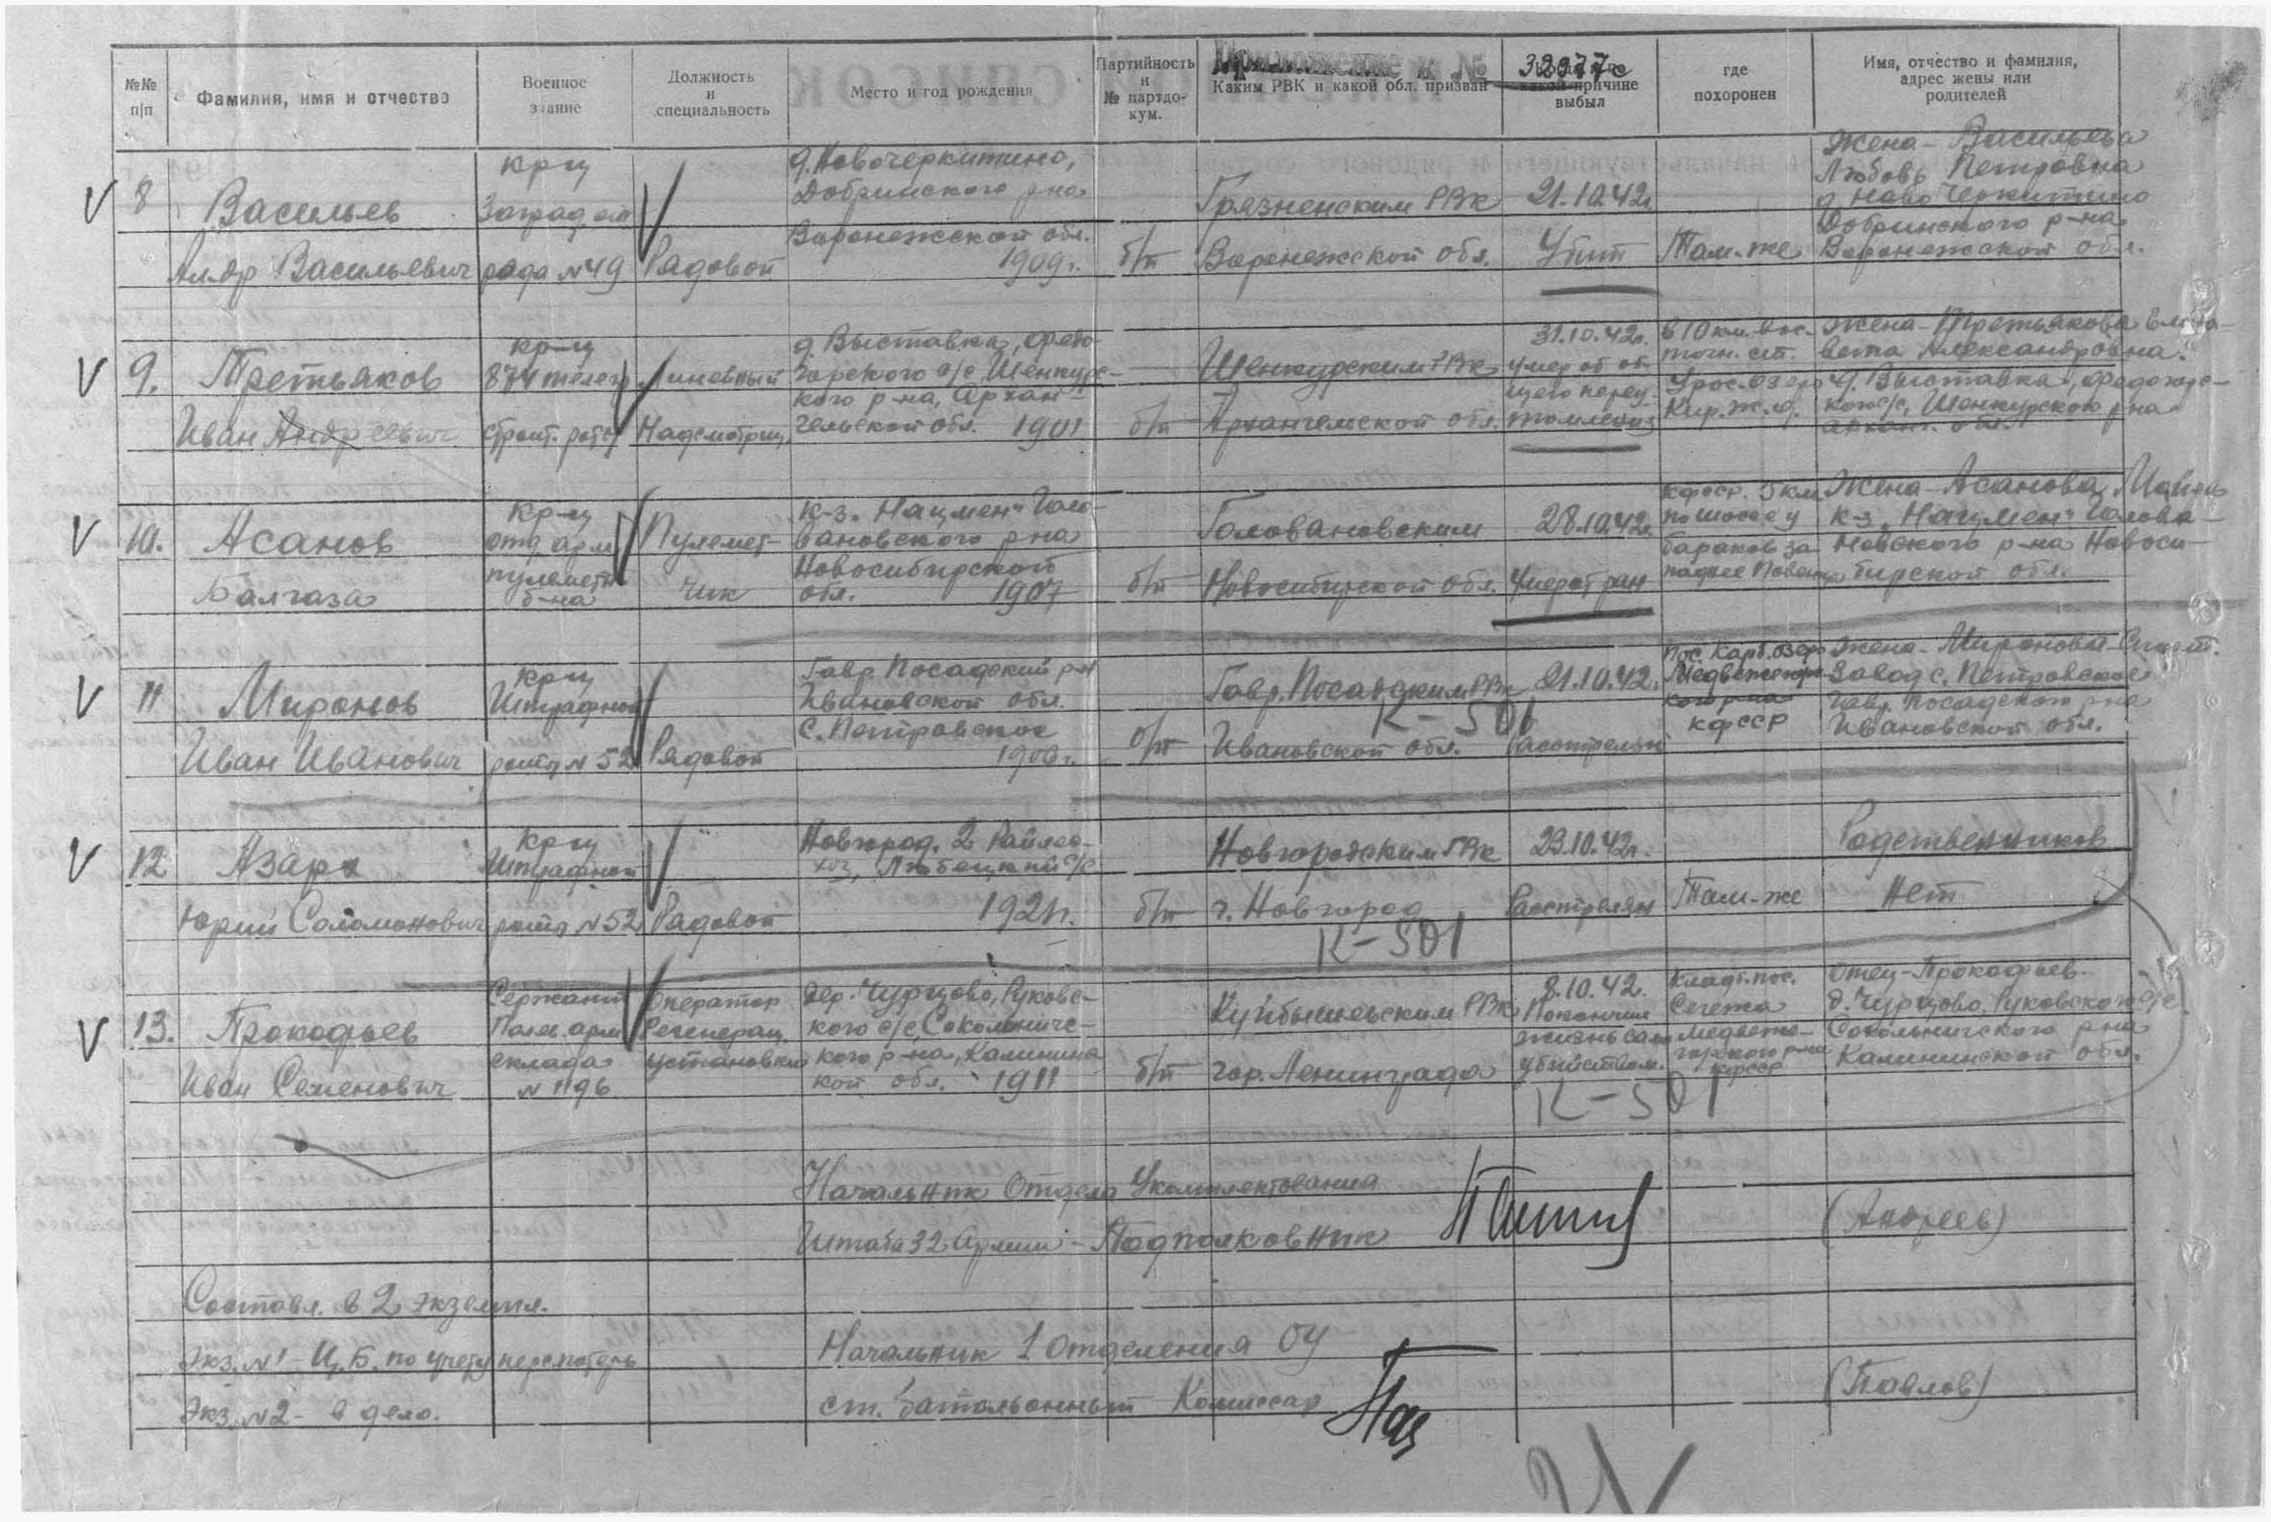 №№ п/п
Фамилия, имя и отчество
Военное звание
Должность и специальность
Место и год рождения
Партийность и № партдокум.
Каким РВК и какой обл. призван
32977с
причине выбыл
где похоронен
Имя, отчество и фамилия, адрес жены или родителей
8
Васильев
Ал-др Васильевич
кр-ц
Заград. от
ряда №49
Рядовой
д. Новочеркитино,
Добринского р-на
Воронежской обл.
1909г.
б/п
Грязненским РВК
Воронежской обл.
21.10.42г.
Убит
Там-же
Жена - Васильева
Любовь Петровна
д. Ново Черкитино
Добринского р-на
Воронежской обл.
9.
Третьяков
Иван Андреевич
кр-ц
874 телегр
строит. роты
Линейный
Надсмотрщ.
д. Выставка,
с/с Шенкурс-
кого р-на, Архан-
гельской обл. 1901
б/п
Шенкурским РВК
Архангельской обл.
31.10.42г.
Умер от об-
щего переу-
томления
в 10 км. вос-
точн. ст.
Урос-озеро
Кир. ж.д.
Жена - Третьякова Елиза-
вета Александровна.
д. Выставка,
с/с, Шенкурского р-на
Арханг. обл.
10.
Асанов
Балгаза
Кр-ц
отд арм
пулеметн
б-на
Пулемет-
чик
к-з. "Нацмен" Голо-
вановского р-на
Новосибирской
обл. 1907
б/п
Головановским
Новосибирской обл.
28.10.42г.
Умер от ран
КФССР. 5 км
по шоссе у
бараков за
Жена - Асанова
к-з "Нацмен" Голова-
новского р-на Новоси-
бирской обл.
11
Миронов
Иван Иванович
кр-ц
Штрафной
роты №52
Рядовой
Гавр. Посадский р-н
Ивановской обл.
с. Петровское
1906г.
б/п
Гавр. Посадским РВК
Ивановской обл.
К-501
21.10.42.
Расстрелян
Пос. Карб. озеро
Медвежьегор
кого р-на
КФССР
Жена - Миронова
Завод с. Петровское
Гавр. Посадского р-на
Ивановской обл.
12
Азарх
Юрий Соломонович
кр-ц
Штрафной
роты №52
Рядовой
Новгород. 2
1921г.
б/п
Новгородским ГВК
г. Новгород
К-501
23.10.42г.
Расстрелян
Там-же
Родственников
Нет
13.
Прокофьев
Иван Семенович
Сержант
Полев. арм
склада
№1196
Оператор
Регенерац.
установки
Дер. Чурцово, Руковс-
кого с/с, Сокольничс-
кого р-на, Калининс
кой обл. 1911
б/п
Куйбышевским РВК
гор. Ленинграда
8.10.42г.
Покончил
жизнь само
убийством.
К-501
Кладб. пос.
Сегежа
Медвежье-
горского р-на
КФССР
Отец - Прокофьев
д. Чурцово, Руковского с/с
Сокольничского р-на
Калининской обл.
Начальник Отдела Укомплектования
Штаба 32 Армии - Подполковник
(Андреев)
Составл. в 2 экземпл.
Экз. №1 - Ц.Б. по учету перс. потерь
Экз. №2 - в дело.
Начальник 1 отделения ОУ
ст. батальонный Комиссар
(Павлов)